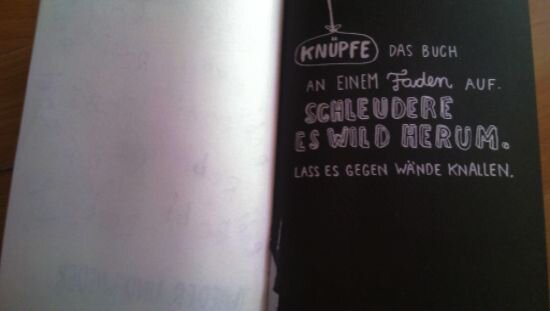 KNÜPFE DAS BUCH
AN EINEM Faden AUF.
SCHLEUDERE
ES WILD HERUM.
LASS ES GEGEN WÄNDE KNALLEN.